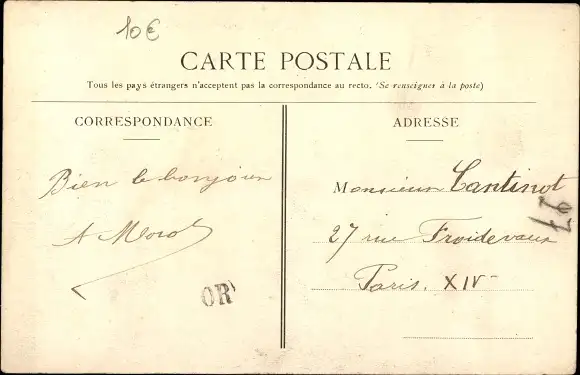 10€
CARTE POSTALE
Tous les pays étrangers n'acceptent pas la correspondance au recto. (Se renseigner à la poste)
CORRESPONDANCE
Bien le bonjour
A Morot
OR
ADRESSE
Monsieur Cantinot
27 rue Froidevaux
Paris. XIV